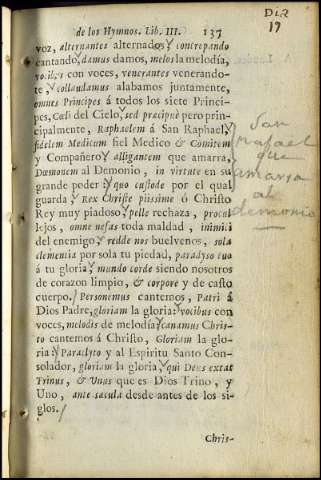 Dic
17
de los Hymnos. Lib. III. 137
voz, alternantes alternados, y concrepando
cantando, damus damos, melos la melodia,
vocibus con voces, venerantes venerando-
te, collaudamus alabamos juntamente,
omnes Principes à todos los siete Princi-
pes, Cœli del Cielo, sed præcipuè pero prin-
cipalmente, Raphaelem à San Raphael,
fidelem Medicum fiel Medico & Comitem
y Compañero, alligantem que amarra,
Dæmonem al Demonio, in virtute en su
grande poder, quo custode por el qual
guarda, Rex Christe piissime ò Christo
Rey muy piadoso, pelle rechaza, procul
lejos, omne nefas toda maldad, inimici
del enemigo, redde nos buelvenos, sola
clementia por sola tu piedad, paradyso tuo
à tu gloria, mundo corde siendo nosotros
de corazon limpio, & corpore y de casto
cuerpo. Personemus cantemos, Patri à
Dios Padre, gloriam la gloria, vocibus con
voces, melodis de melodía, canamus Chris-
to cantemos à Christo, Gloriam la glo-
ria, Paraclyto y al Espiritu Santo Con-
solador, gloriam la gloria, qui Deus extat
Trinus, & Unus que es Dios Trino, y
Uno, ante sæcula desde antes de los si-
glos.
Chris-
San
Rafael
que
amarra
al
demonio